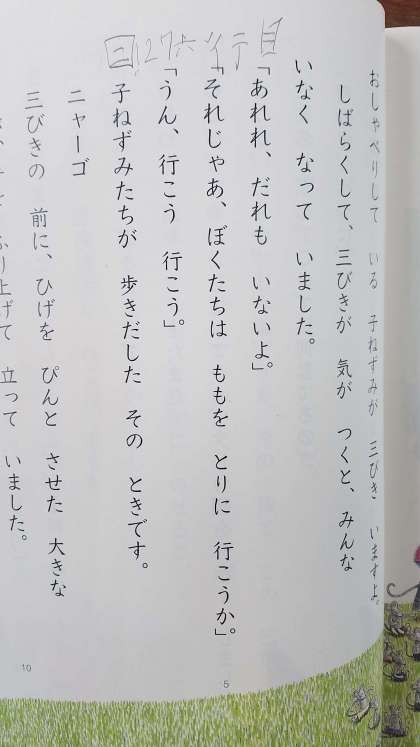 おしゃべりして いる 子ねずみが 三びき いますよ。
しばらくして、三びきが 気が つくと、みんな
いなく なって いました。
「あれれ、だれも いないよ。」
「それじゃあ、ぼくたちは ももを とりに 行こうか。」
「うん、行こう 行こう。」
子ねずみたちが 歩きだした その ときです。
ニャーゴ
三びきの 前に、ひげを ぴんと させた 大きな
ふり上げて 立って いました。
5
10